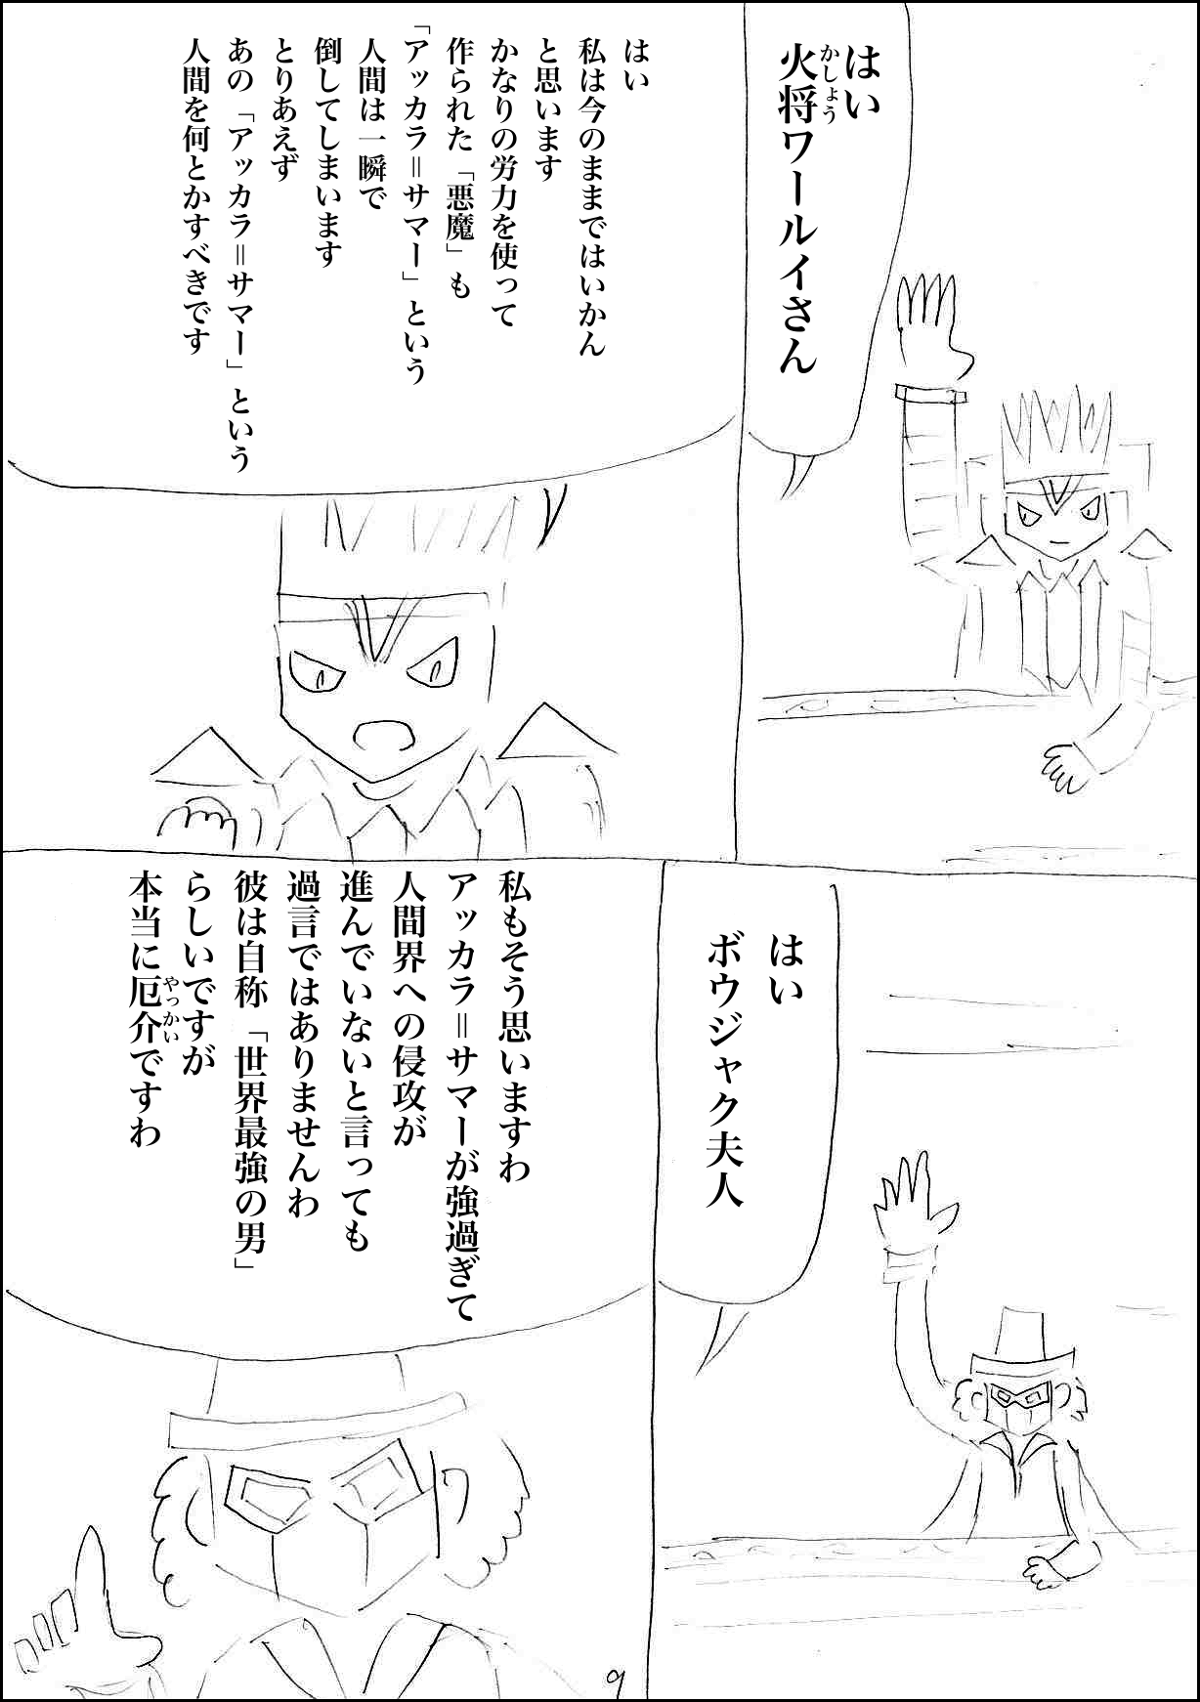 はい
火将ワールイさん
かしょう
はい
私は今のままではいかん
と思います
かなりの労力を使って
作られた「悪魔」も
「アッカラ=サマー」という
人間は一瞬で
倒してしまいます
とりあえず
あの「アッカラ=サマー」という
人間を何とかすべきです
はい
ボウジャク夫人
私もそう思いますわ
アッカラ=サマーが強過ぎて
人間界への侵攻が
進んでいないと言っても
過言ではありませんわ
彼は自称「世界最強の男」
らしいですが
本当に厄介ですわ
やっかい
9